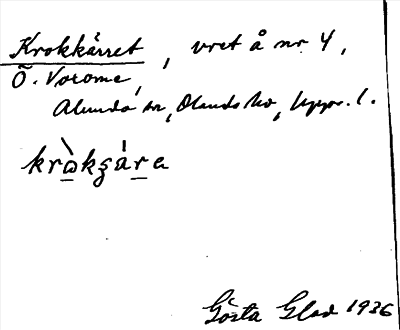 Krokkärret, vret å nr 4,
Ö. Vorome,
Alunda sn, Olands hd, Upps. l.
kròkʒár̲a
Gösta Glad 1936